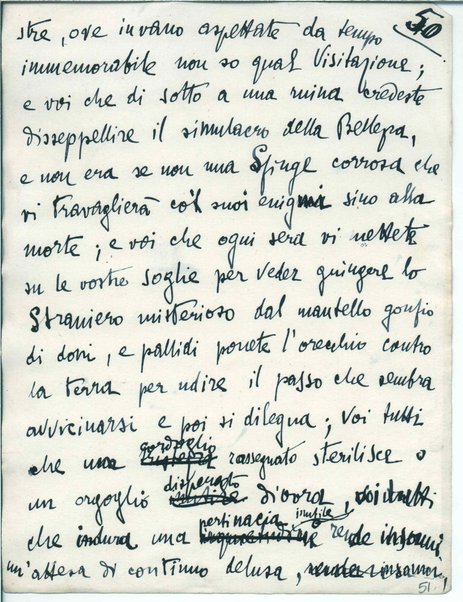 50
stre, ove invano aspettate da tempo
immemorabile non so qual Visitazione;
e voi che di sotto a una ruina credeste
disseppellire il simulacro della Bellezza,
e non era se non una Sfinge corrosa che
vi travaglierà co'l suoi enigmi sino alla
morte; e voi che ogni sera vi mettete
su le vostre soglie per veder giungere lo
Straniero misterioso dal mantello gonfio
di doni, e pallidi ponete l'orecchio contro
la terra per udire il passo che sembra
avvicinarsi e poi si dilegua; voi tutti
cordoglio
che una rassegnato sterilisce o
disperato
un orgoglio divora, voi tutti
pertinacia inutile
che indura una rende insonni
un'attesa di continuo delusa,
51.